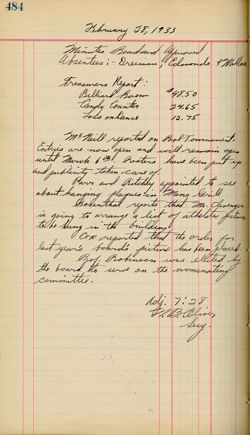 484
February 28, 1933
Minutes Read and Approved
Absentees:- Drennan, Edmonds & Wallace
Treasurers Report:
Billiard Room $48.50
Candy Counter 24.65
Loss on dance 13.75
McNeill reported on Pool Tournament.
Entries are now open and will remain open
until March 6th. Posters have been put up
and publicity taken care of.
Parr and appointed to see
about hanging plaques in Mens Grill
Rosenthal reports that Mr. Clevenger
is going to arrange a list of athletic pictures
to be hung in the building.
Cox reported that the order for
last year's boards picture has been placed.
Bob Robinson was elected by
the board to serve on the nominating
committee.
Adj. 7:28
Secy.